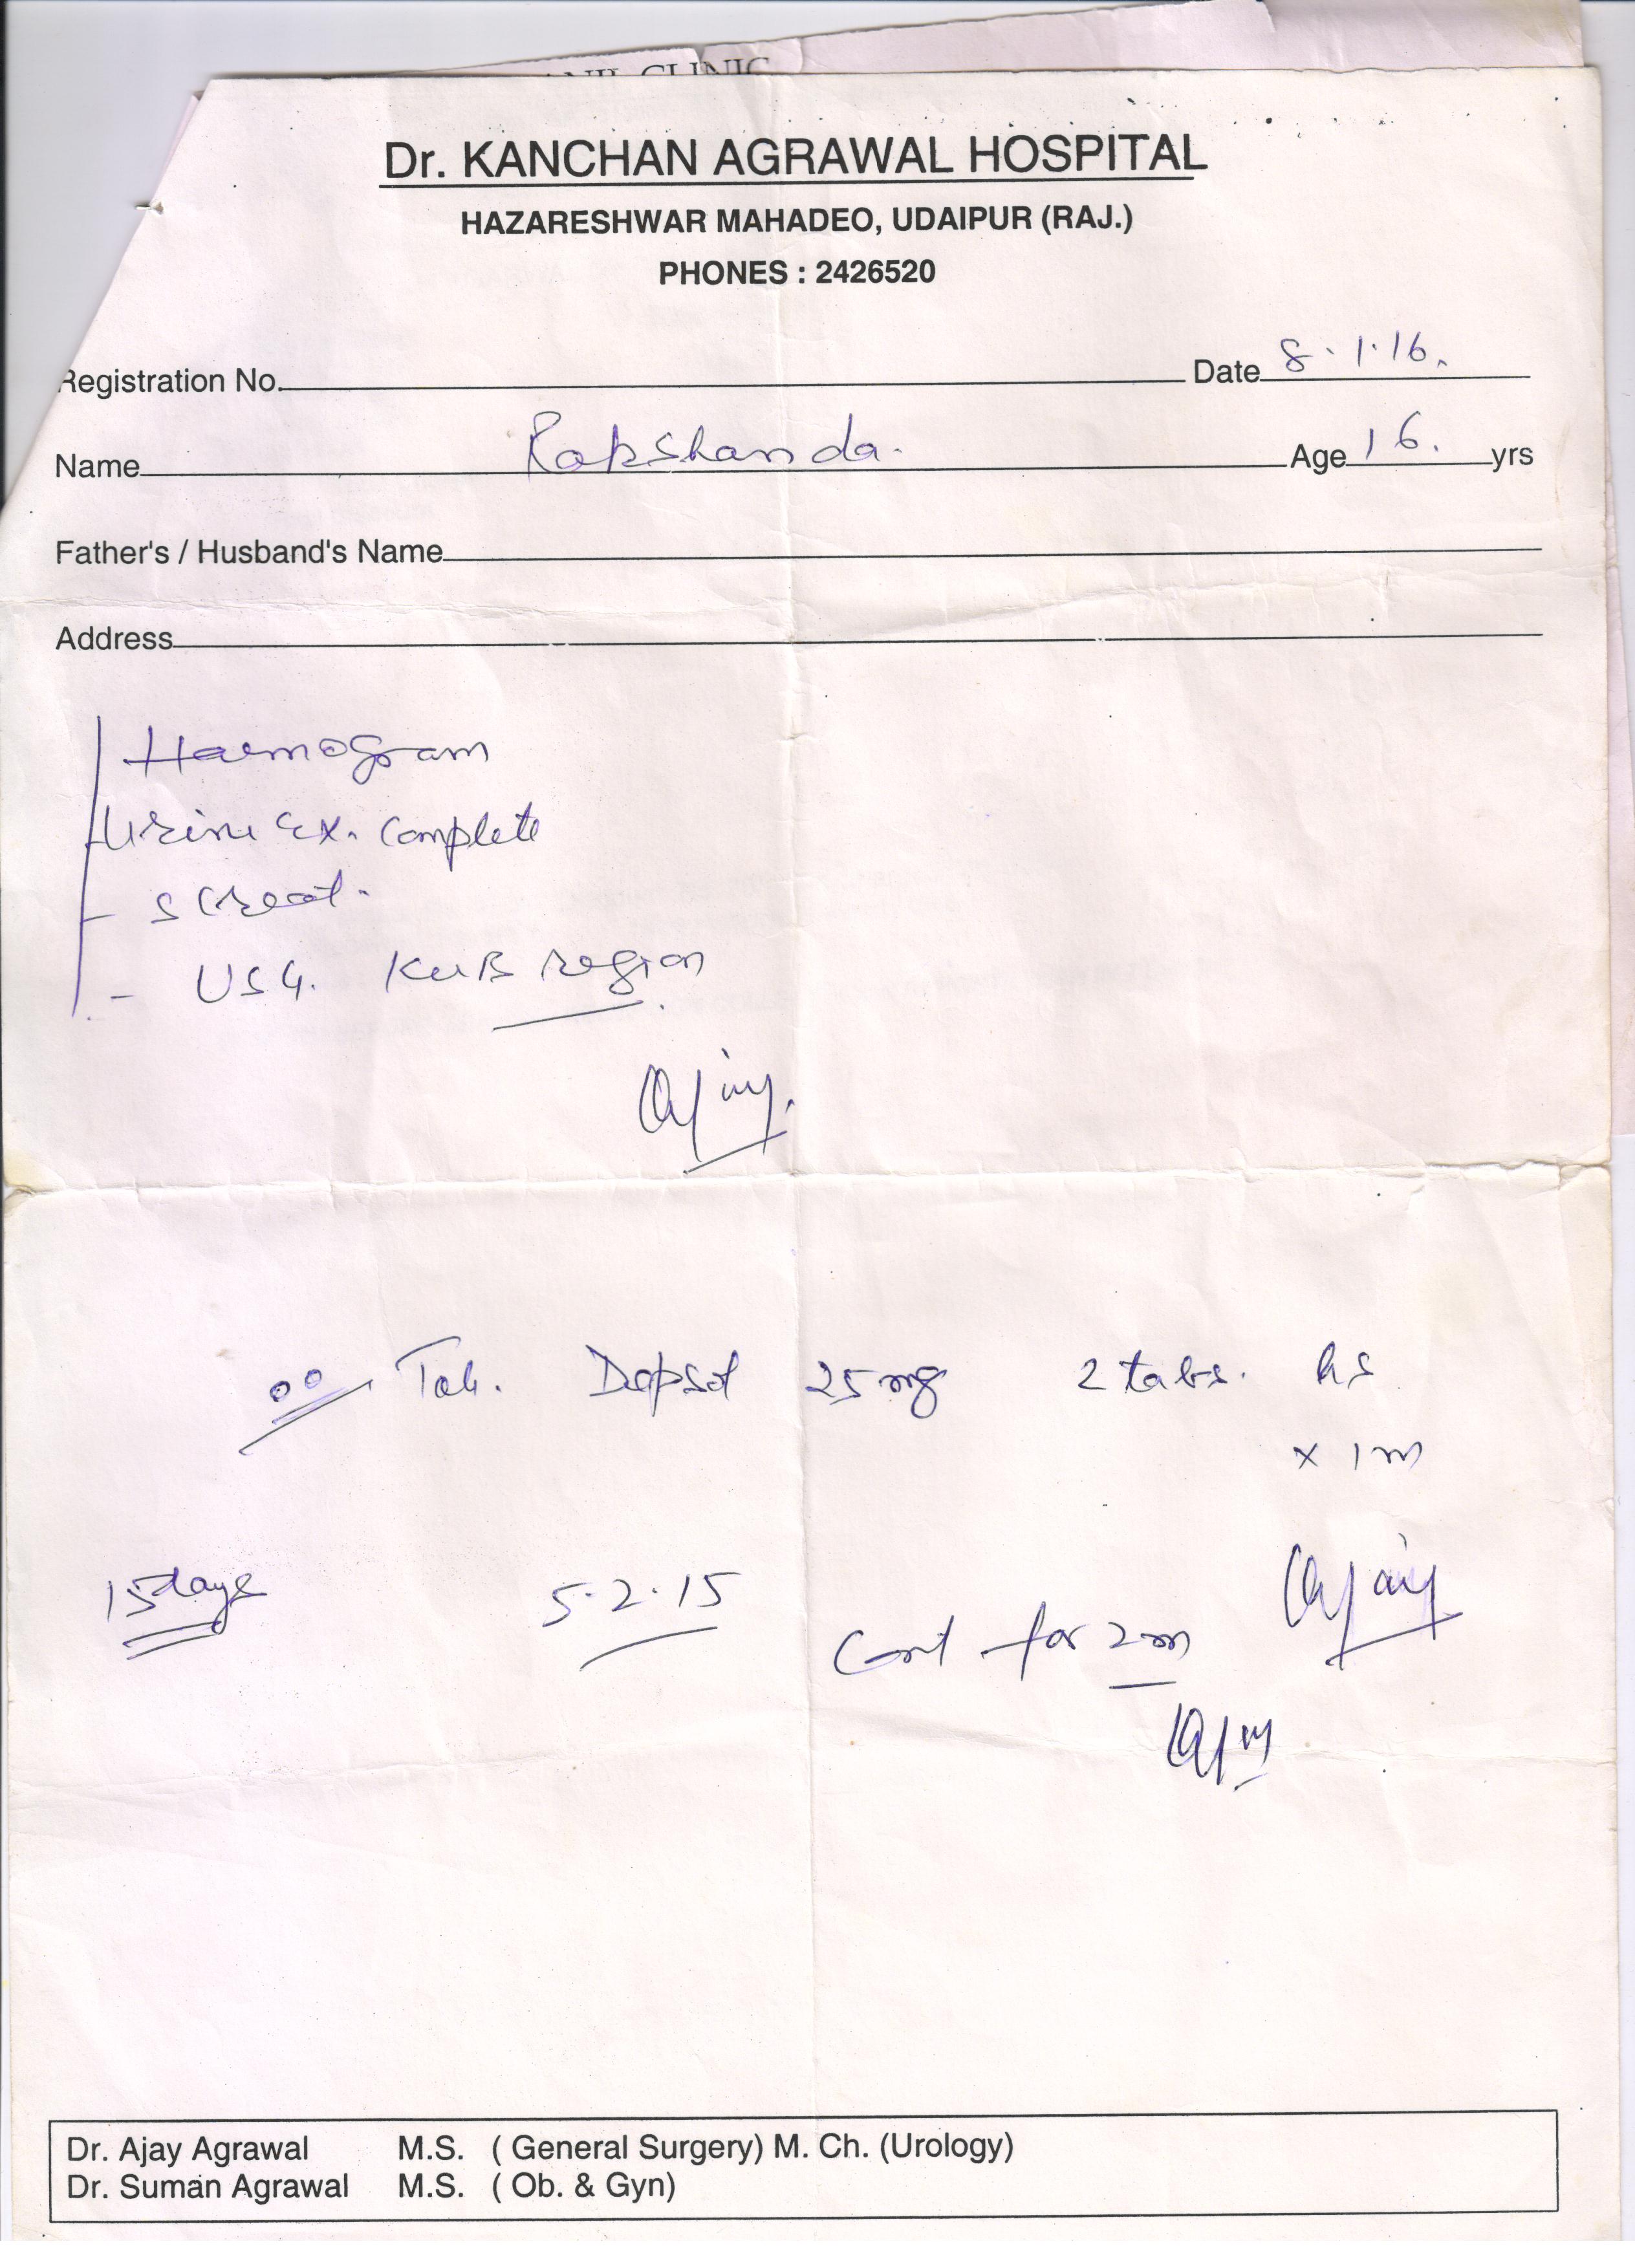 CLINIC
Dr. KANCHAN AGRAWAL HOSPITAL
HAZARESHWAR MAHADEO, UDAIPUR (RAJ.)
PHONES : 2426520
Registration No. Date 8.1.16.
Name Rakshanda. Age 16. yrs
Father's / Husband's Name
Address
Haemogram
Urine Ex. Complete
- S Creat.
- USG. KUB region
Ajay.
Tab. Depsol 25mg 2 tabs. hs
x 1m
Ajay
15 days 5.2.15
Cont for 2m
Ajay
Dr. Ajay Agrawal M.S. ( General Surgery) M. Ch. (Urology)
Dr. Suman Agrawal M.S. ( Ob. & Gyn)